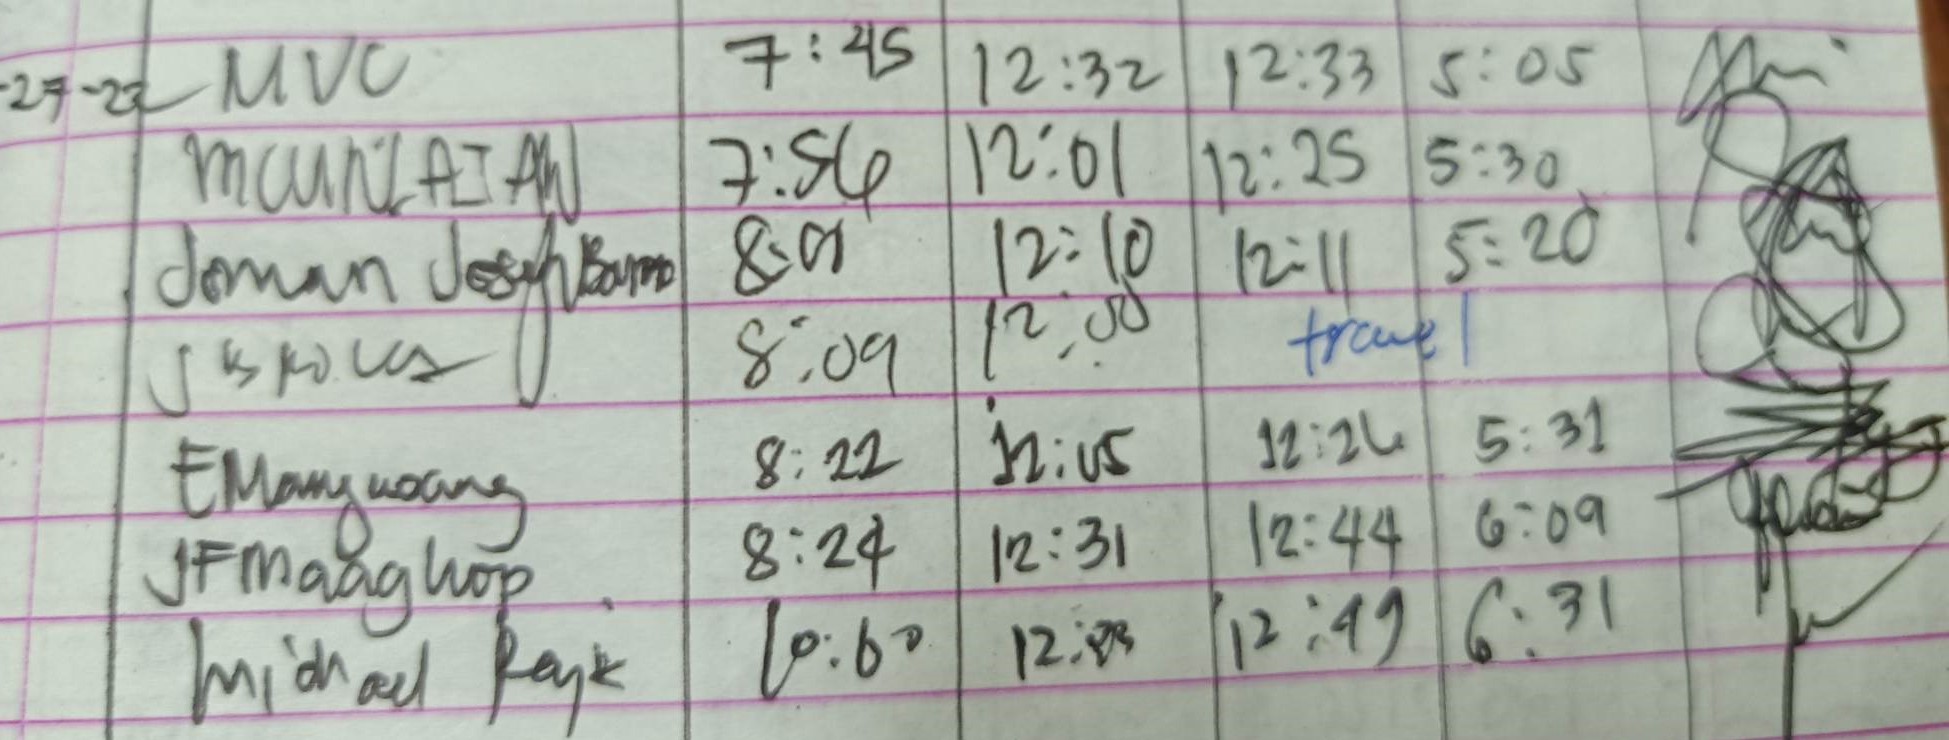 -27-22 MVC 7:45 12:32 12:33 5:05
7:56 12:01 12:25 5:30
Joman Joseph 8:01 12:10 12:11 5:20
8:09 12:00 travel
8:22 12:05 12:26 5:31
JFMaaghop 8:24 12:31 12:44 6:09
Michael 12:49 6:31